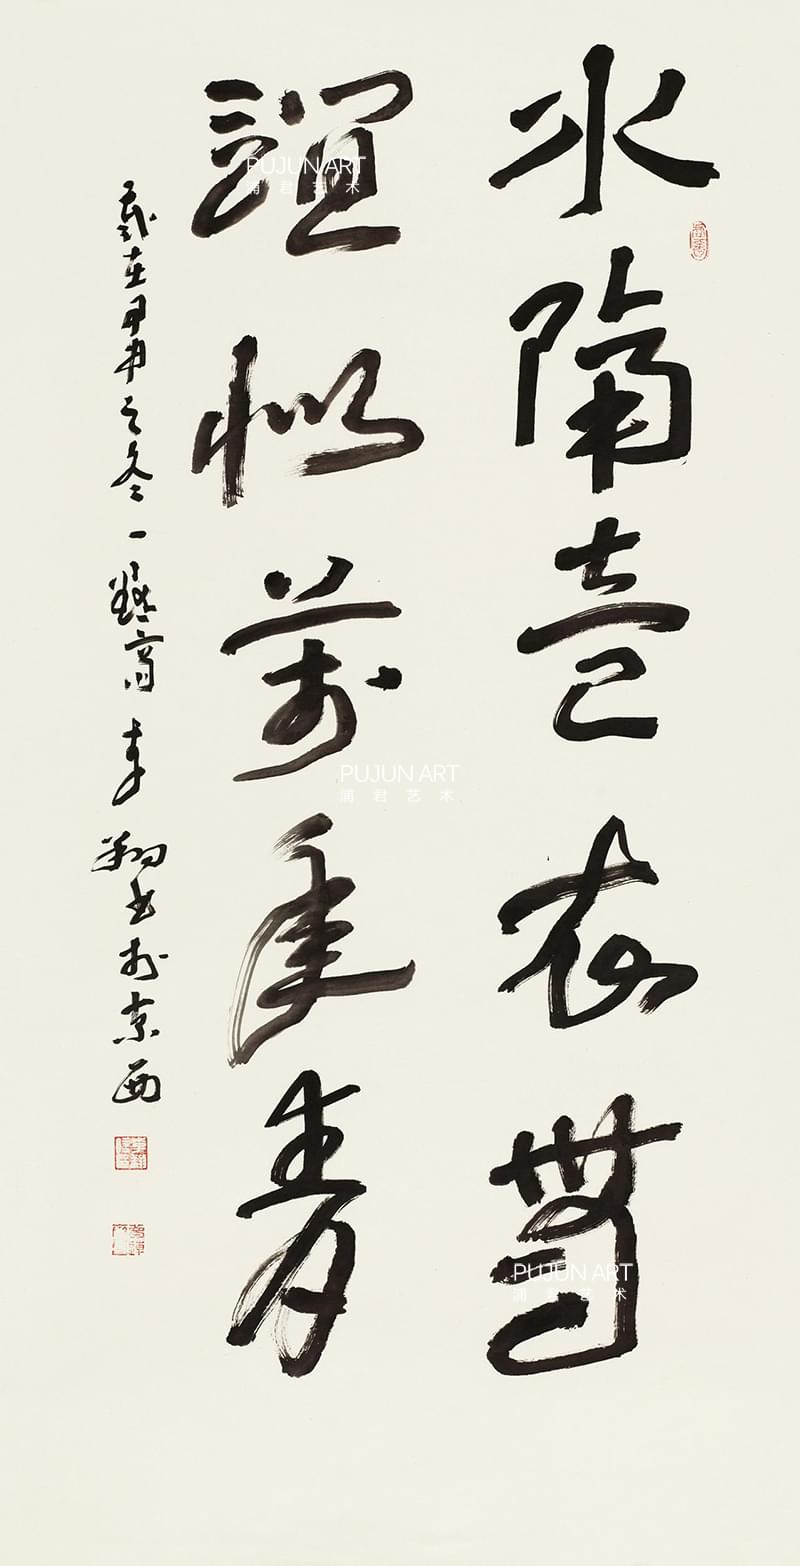 水隔壹衣帶
誼似萬年青
歲在甲申之冬一齋李翔書於京西
PUJUN ART
浦君艺术
PUJUN ART
浦君艺术
PUJUN ART
浦君艺术